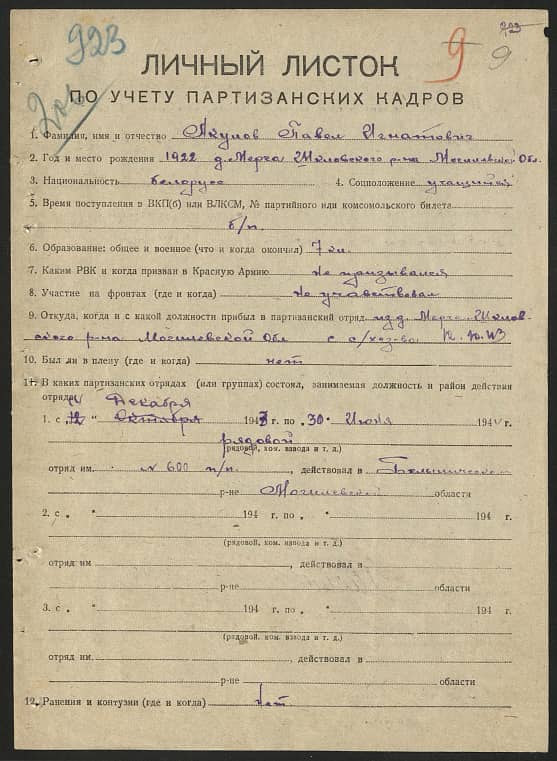 923
9
9
ЛИЧНЫЙ ЛИСТОК
ПО УЧЕТУ ПАРТИЗАНСКИХ КАДРОВ
1. Фамилия, имя и отчество Якупов Павел Игнатович
2. Год и место рождения 1922 д. Мерча Шкловского р-на Могилевской Обл.
3. Национальность белорусс 4. Соцположение учащийся
5. Время поступления в ВКП(б) или ВЛКСМ, № партийного или комсомольского билета
б/п.
6. Образование: общее и военное (что и когда окончил) 7 кл.
7. Каким РВК и когда призван в Красную Армию Не призывался
8. Участие на фронтах (где и когда) Не участвовал
9. Откуда, когда и с какой должности прибыл в партизанский отряд из д. Мерча Шклов-
ского р-на Могилевской Обл с с/хозва
10. Был ли в плену (где и когда) нет
11. В каких партизанских отрядах (или группах) состоял, занимаемая должность и район действия
отряда Декабря
1. с 12 " Октября 1943 г. по 30 " Июня 194 г.
рядовой
(рядовой, ком. взвода и т. д.)
отряд им. № 600 п/п. , действовал в
р-не Могилевской области
2. с " " 194 г. по " " 194 г.
(рядовой, ком. взвода и т. д.)
отряд им , действовал в
р-не области
3. с " " 194 г. по " " 194 г.
(рядовой, ком. взвода и т. д.)
отряд им , действовал в
р-не области
12. Ранения и контузии (где и когда) нет